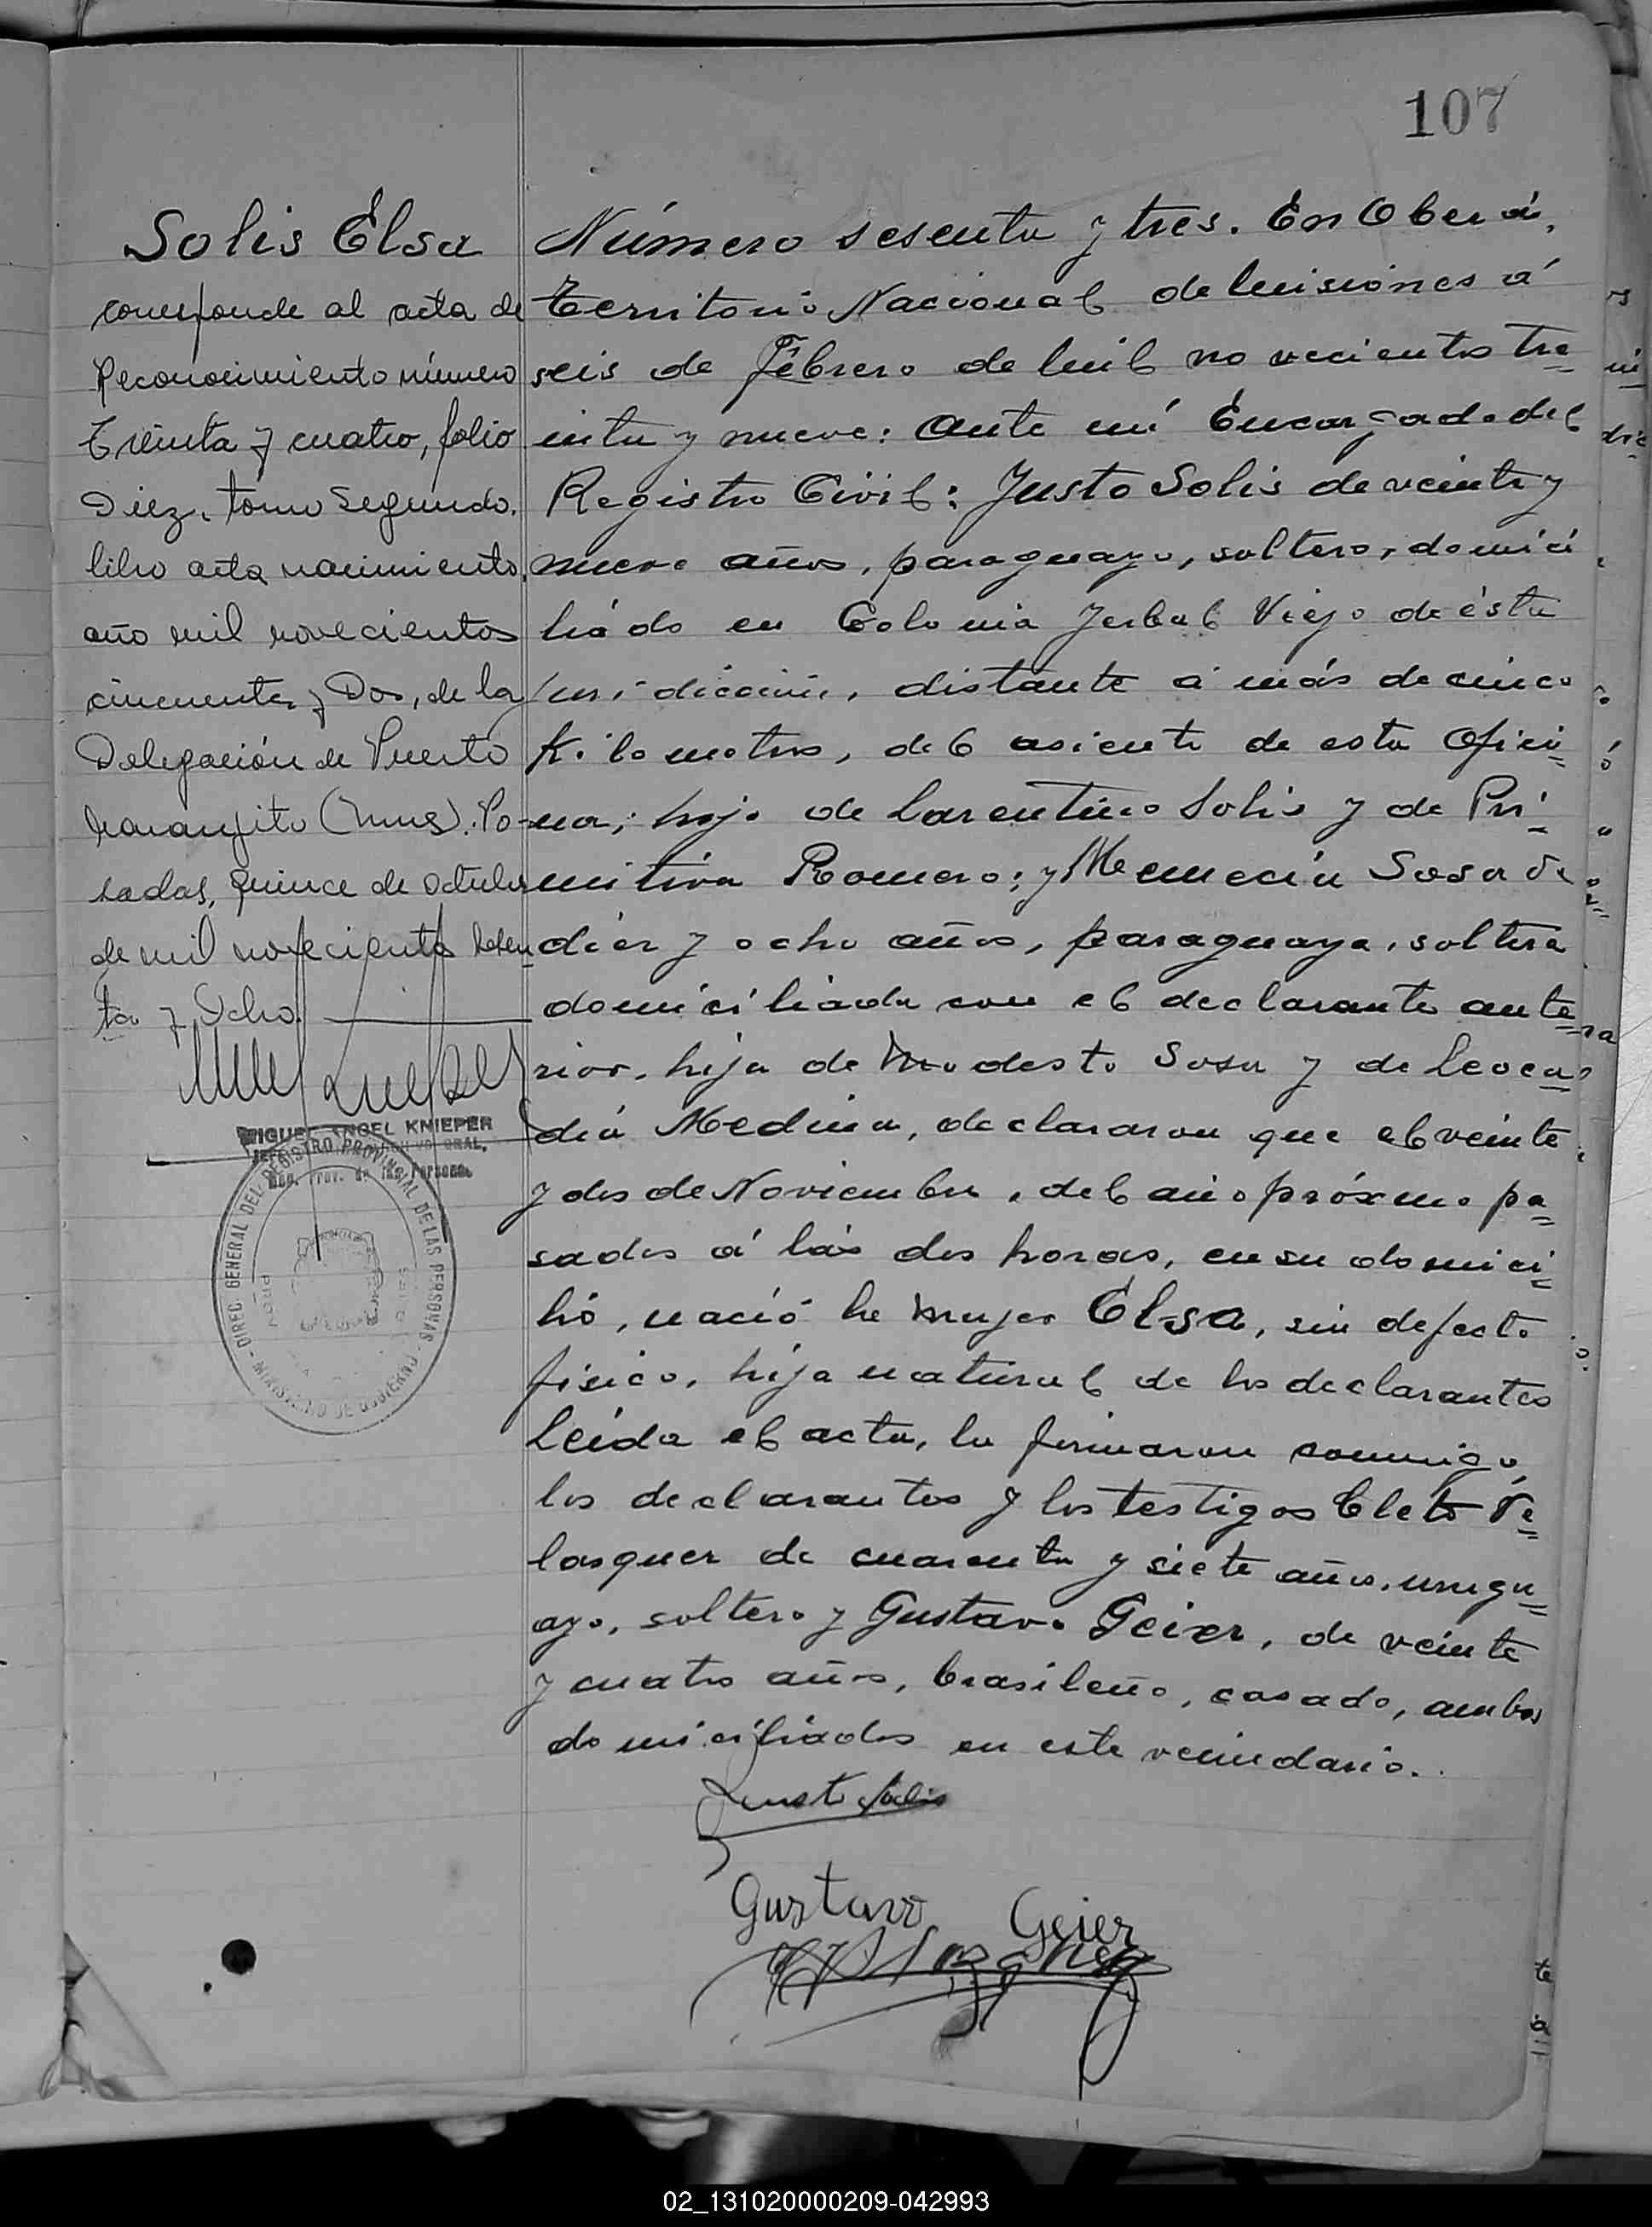 107
Solis Elsa
corresponde al acta de
Reconocimiento número
Treinta y cuatro, folio
Diez, tomo Segundo,
libro acta nacimiento,
año mil novecientos
cincuenta y Dos, de la
Delegación de Puerto
Naranjito (Mnes). Po-
sadas, quince de octubre
de mil novecientos seten
ta y Ocho.
MIGUEL ANGEL KNIEPER
Reg. Prov. de las Personas
DIREC. GENERAL DEL REGISTRO PROVINCIAL DE LAS PERSONAS - MINISTERIO DE GOBIERNO -
Número sesenta y tres. En Oberá,
Territorio Nacional de Misiones á
seis de Febrero de mil novecientos tre=
inta y nueve: Ante mí Encargado del
Registro Civil: Justo Solis de veinte y
nueve años, paraguayo, soltero, domici
liádo en Colonia Yerbal Viejo de ésta
juridiccion, distante á más de cinco
Kilometros, del asiento de esta Ofici=
na; hijo de Larentino Solis y de Pri=
mitiva Romero; y Memecia Sosa de
diez y ocho años, paraguaya, soltera
domiciliada con el declarante ante=
rior, hija de Modesto Sosa y de Leoca=
dia Medina, declararon que el veinte
y dos de Noviembre, del año próximo pa=
sados á las dos horas, en su domici=
lio, nació la mujer Elsa, sin defecto
fisico, hija natural de los declarantes
Leída el acta, la firmaron conmigo,
los declarantes y los testigos Cleto Ve=
lasquez de cuarenta y siete años, urugu=
ayo, soltero y Gustavo Geier, de veinte
y cuatro años, brasileño, casado, ambos
domiciliados en este vecindario.
Justo Solis
Gustavo Geier
02_131020000209-042993